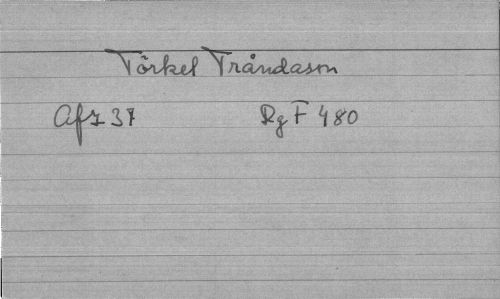 Törkel Tråndason
Afz 37 Rg F 480